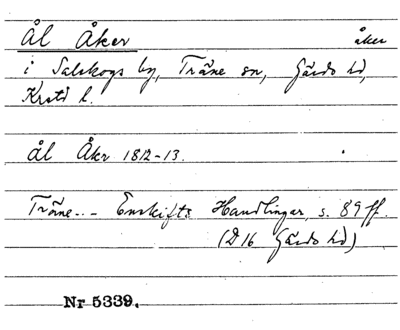 Ål Åker åker
i Salskogs by, Träne sn, Gärds hd,
Krstd l.
ål Åkr 1812-13.
Träne.. - Enskifts Handlingar, s. 89 ff.
(D 16 Gärds hd)
Nr 5339.